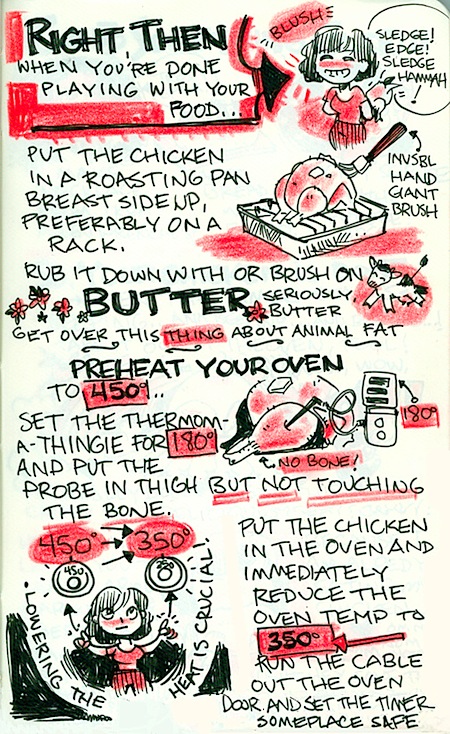 RIGHT, THEN
WHEN YOU'RE DONE
PLAYING WITH YOUR
FOOD...
BLUSH
SLEDGE!
EDGE!
SLEDGE
HAMMAH
!
PUT THE CHICKEN
IN A ROASTING PAN
BREAST SIDE UP,
PREFERABLY ON A
RACK.
INVSBL
HAND
GIANT
BRUSH
RUB IT DOWN WITH OR BRUSH ON
BUTTER
SERIOUSLY,
BUTTER
GET OVER THIS THING ABOUT ANIMAL FAT
PREHEAT YOUR OVEN
TO 450°..
SET THE THERMOM-
A-THINGIE FOR 180°
AND PUT THE
PROBE IN THIGH BUT NOT TOUCHING
THE BONE.
180°
NO BONE!
450° 350°
450
LOWERING THE
HEAT IS CRUCIAL!
PUT THE CHICKEN
IN THE OVEN AND
IMMEDIATELY
REDUCE THE
OVEN TEMP TO
350°
RUN THE CABLE
OUT THE OVEN
DOOR. AND SET THE TIMER
SOMEPLACE SAFE